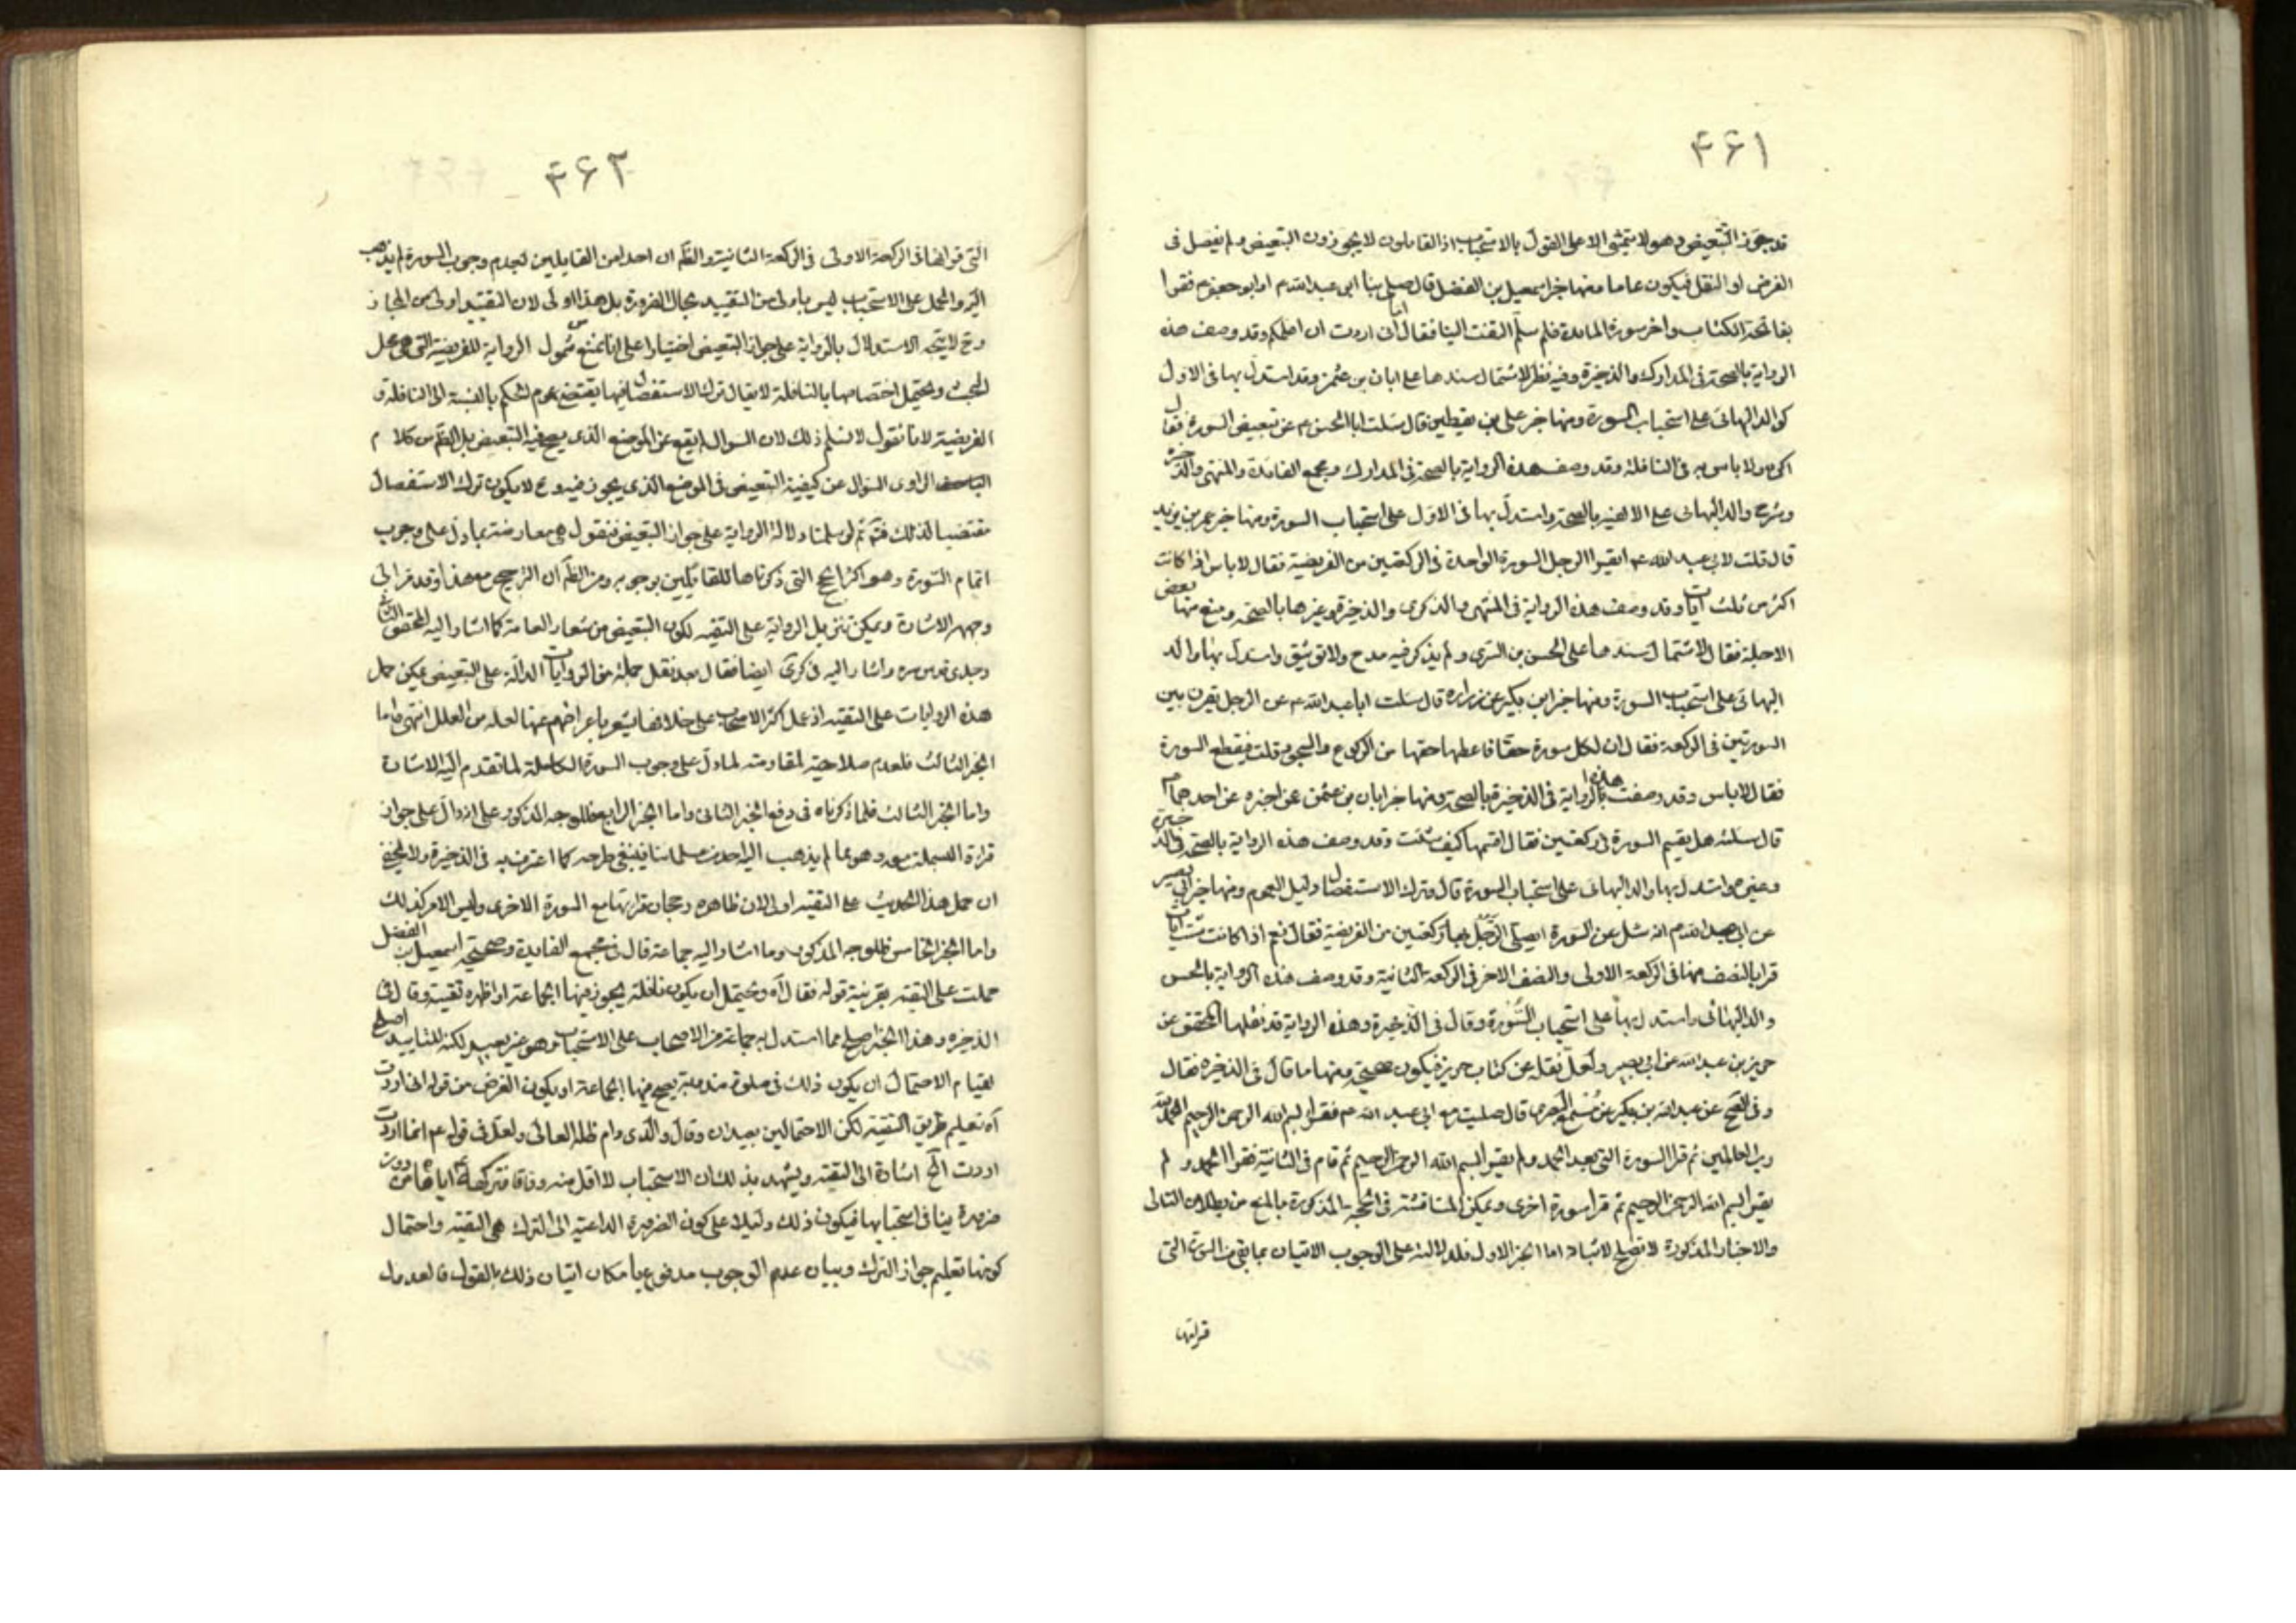 ۴۶۱
قد جوز التبعيض وهو لا يتمشى الا على القول بالاستحباب اذ القائلون لا يجوزون التبعيض ولم يفصل فى
الفرض او النفل فيكون عاما ومنها خبر اسمعيل بن الفضل قال صلى بنا ابى عبد الله م او ابو جعفر م فقرا
بفاتحة الكتاب واخر سورة المائدة فلم سلم التفت الينا فقال اما ان اردت ان اعلمكم وقد وصف هذه
الرواية بالصحة فى المدارك والذخيرة وفيه نظر لاشتمال سندها على ابان بن عثمن وقد استدل بها فى الاول
كوالد البهائى على استحباب السورة ومنها خبر على بن يقطين قال سئلت ابا الحسن م عن تبعيض السورة فقال
اكره ولا باس به فى النافلة وقد وصف هذه الرواية بالصحة فى المدارك ومجمع الفائدة والمنتهى والذخيرة
وشرح والد البهائى على الالفية بالصحة واستدل بها فى الاول على استحباب السورة ومنها خبر عمر بن يزيد
قال قلت لابى عبد الله م ايقرا الرجل السورة الواحدة فى الركعتين من الفريضة فقال لا باس اذا كانت
اكثر من ثلث ايات وقد وصف هذه الرواية فى المنتهى والذكرى والذخيرة وغيرها بالصحة ومنع منها بعض
الاجلة فقال لاشتمال سندها على الحسن بن السرى ولم يذكر فيه مدح ولا توثيق واستدل بها والد
البهائى على استحباب السورة ومنها خبر ابن بكير عن زراره قال سئلت ابا عبد الله م عن الرجل يقرن بين
السورتين فى الركعة فقال ان لكل سورة حقا فاعطها حقها من الركوع والسجود قلت فيقطع السورة
فقال لا باس وقد وصفت هذه الرواية فى الذخيرة بالصحة ومنها خبر ابان بن عثمن عن اخبره عن احدهما م
قال سئلته هل يقسم السورة فى ركعتين فقال اقسمها كيف شئت وقد وصف هذه الرواية بالصحة فى الذخيرة
وغيره واستدل بها والد البهائى على استحباب السورة قال وترك الاستفصال دليل العموم ومنها خبر ابى بصير
عن ابى عبد الله م انه سئل عن السورة ايصلى الرجل بها ركعتين من الفريضة فقال نعم اذا كانت ست ايات
قرا بالنصف منها فى الركعة الاولى والنصف الاخر فى الركعة الثانية وقد وصف هذه الرواية بالحسن
والد البهائى واستدل بها على استحباب السورة وقال فى الذخيرة وهذه الرواية قد نقلها المحقق عن
حريز بن عبد الله عن ابى بصير ولعل نقله عن كتاب حريز فيكون صحيحة ومنها ما قال فى الذخيرة فقال
وفى الصحيح عن عبد الله بن بكير عن مسمع البصرى قال صليت مع ابى عبد الله م فقرا بسم الله الرحمن الرحيم الحمد لله
رب العالمين ثم قرا السورة التى بعد الحمد ولم يقرا بسم الله الرحمن الرحيم ثم قام فى الثانية فقرا الحمد و لم
يقرا بسم الله الرحمن الرحيم ثم قرا سورة اخرى ويمكن المناقشة فى الحجة المذكورة بالمنع من بطلان التالى
والاخبار المذكورة لا تصلح لاثباته اما الخبر الاول فلدلالته على الوجوب الاتيان بما بقى من السورة التى
قرائتها
۴۶۲
التى قراها فى الركعة الاولى فى الركعة الثانية والظ ان احدا من القايلين لعدم وجوب السورة لم يذهب
اليه والحمل على الاستحباب ليس باولى من التقييد بحال الضرورة بل هذا اولى لان التقييد اولى من المجاز
وح لا يتجه الاستدلال بالرواية على جواز التبعيض اختيارا على انا نمنع من شمول الرواية للفريضة التى هى محل
البحث ويحتمل اختصاصها بالنافلة لا يقال ترك الاستفصال فيها يقتضى عموم الحكم بالنسبة الى النافلة و
الفريضة لانا نقول لا نسلم ذلك لان السوال لم يقع عن الموضع الذى يصح فيه التبعيض بل الظ من كلام
الراوى السؤال عن كيفية التبعيض فى الموضع الذى يجوز فيه وح لا يكون ترك الاستفصال
مقتضيا لذلك فت ثم لو سلمنا دلالة الرواية على جواز التبعيض فنقول هى معارضة بما دل على وجوب
اتمام السورة وهو اكثر الحجج التى ذكرناها للقائلين بوجوبه ومن الظ ان الترجيح مع هذا وقد مر الى
وجهه الاشارة ويمكن تنزيل الرواية على التقية لكون التبعيض من شعار العامة كما اشار اليه المحقق الثانى
وجدى قدس سره واشار اليه فى كرى ايضا فقال بعد نقل جملة من الروايات الدالة على التبعيض يمكن حمل
هذه الروايات على التقية اذ عمل اكثر الاصحاب على خلافها يشعر باعراضهم عنها لعلة من العلل انتهى واما
الخبر الثالث فلعدم صلاحية لمقاومته لما دل على وجوب السورة الكاملة لما تقدم اليه الاشارة
واما الخبر الثالث فلما ذكرناه فى دفع الخبر الثانى واما الخبر الرابع فللوجه المذكور على انه دال على جواز
قرائة البسملة معه وهو مما لم يذهب اليه احد من علمائنا فينبغى طرحه كما اعترف به فى الذخيرة ولا يخفى
ان حمل هذا الحديث على التقية اولى لان ظاهره رجحان قرائتها مع السورة الاخرى وليس الامر كذلك
واما الخبر الخامس فللوجه المذكور وما اشار اليه جماعة قال فى مجمع الفايدة وصحيحة اسمعيل بن الفضل
حملت على التقية بقرينة قوله فقال آه ويحتمل ان يكون نافلة يجوز فيها الجماعة او اظهره تقية وقال فى
الذخيره وهذا الخبر اصلح مما استدل به جماعة من الاصحاب على الاستحباب وهو غير بعيد لكنه للتاييد اصلح
لقيام الاحتمال ان يكون ذلك فى صلوة مندوبة يصح فيها الجماعة او يكون الغرض من قوله انما اردت
آه تعليم طريق التقية لكن الاحتمالين بعيدان وقال والدى دام ظله العالى ولعل فى قوله عم انما اردت
اردت الخ اشارة الى التقية ويشهد بذلك ان الاستحباب لا اقل منه وفاقا فتركهم اياها من دون
ضرورة ينافى استحبابها فيكون ذلك دليلا على كون الضرورة الداعية الى الترك هى التقية واحتمال
كونها تعليم جواز الترك وبيان عدم الوجوب مدفوع بامكان اتيان ذلك بالقول فالعدول